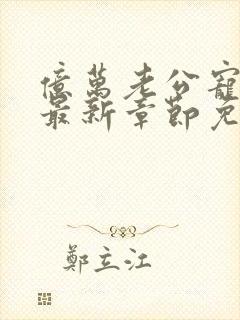 億萬老公寵
最新章節免
鄭立江